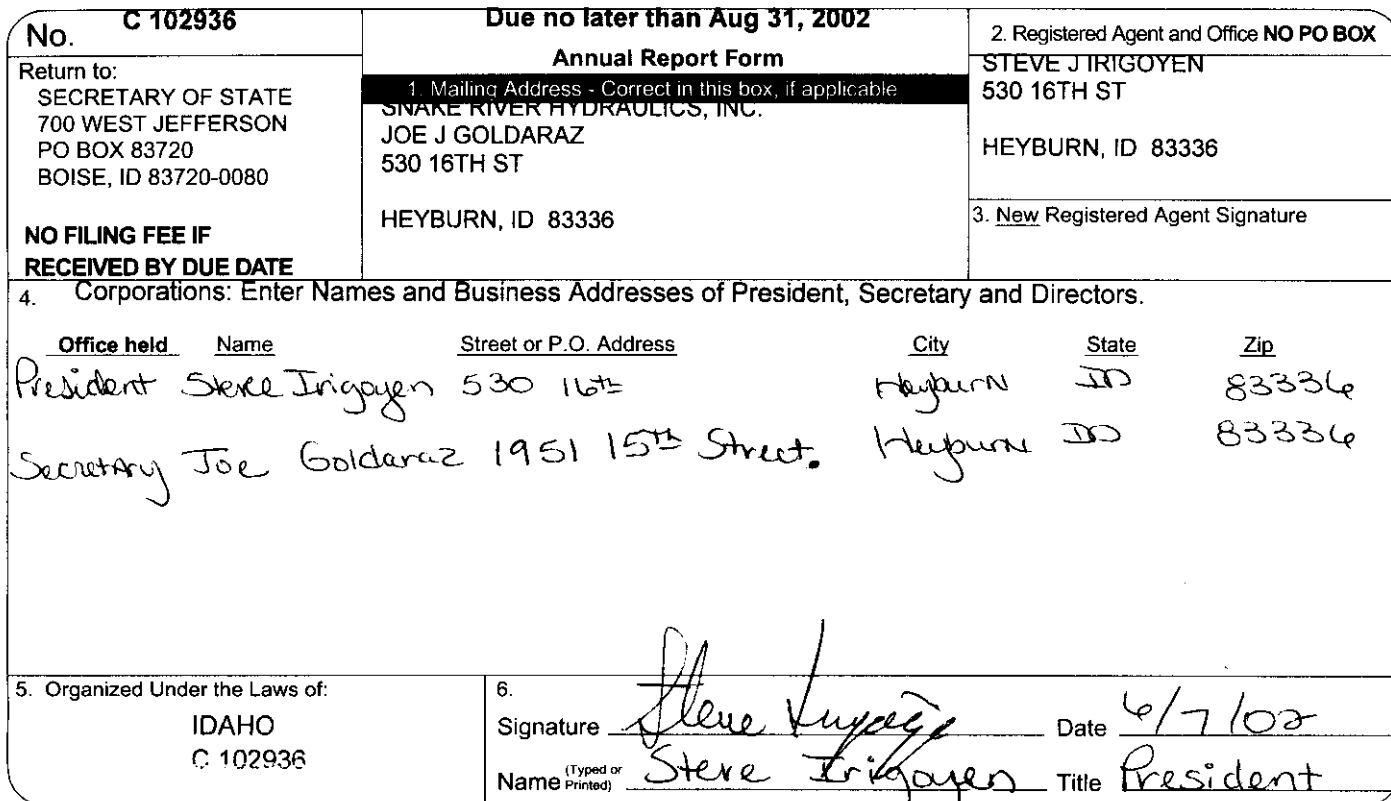 No. C 102936
Return to:
SECRETARY OF STATE
700 WEST JEFFERSON
PO BOX 83720
BOISE, ID 83720-0080
NO FILING FEE IF
RECEIVED BY DUE DATE
Due no later than Aug 31, 2002
Annual Report Form
1. Mailing Address - Correct in this box, if applicable
SNAKE RIVER HYDRAULICS, INC.
JOE J GOLDARAZ
530 16TH ST
HEYBURN, ID 83336
2. Registered Agent and Office NO PO BOX
STEVE J IRIGOYEN
530 16TH ST
HEYBURN, ID 83336
3. New Registered Agent Signature
4. Corporations: Enter Names and Business Addresses of President, Secretary and Directors.
Office held Name Street or P.O. Address City State Zip
President Steve Irigoyen 530 16th Heyburn ID 83336
Secretary Joe Goldaraz 1951 15th Street. Heyburn ID 83336
5. Organized Under the Laws of:
IDAHO
C 102936
6.
Signature Steve Irigoyen Date 6/7/02
Name (Typed or Printed) Steve Irigoyen Title President